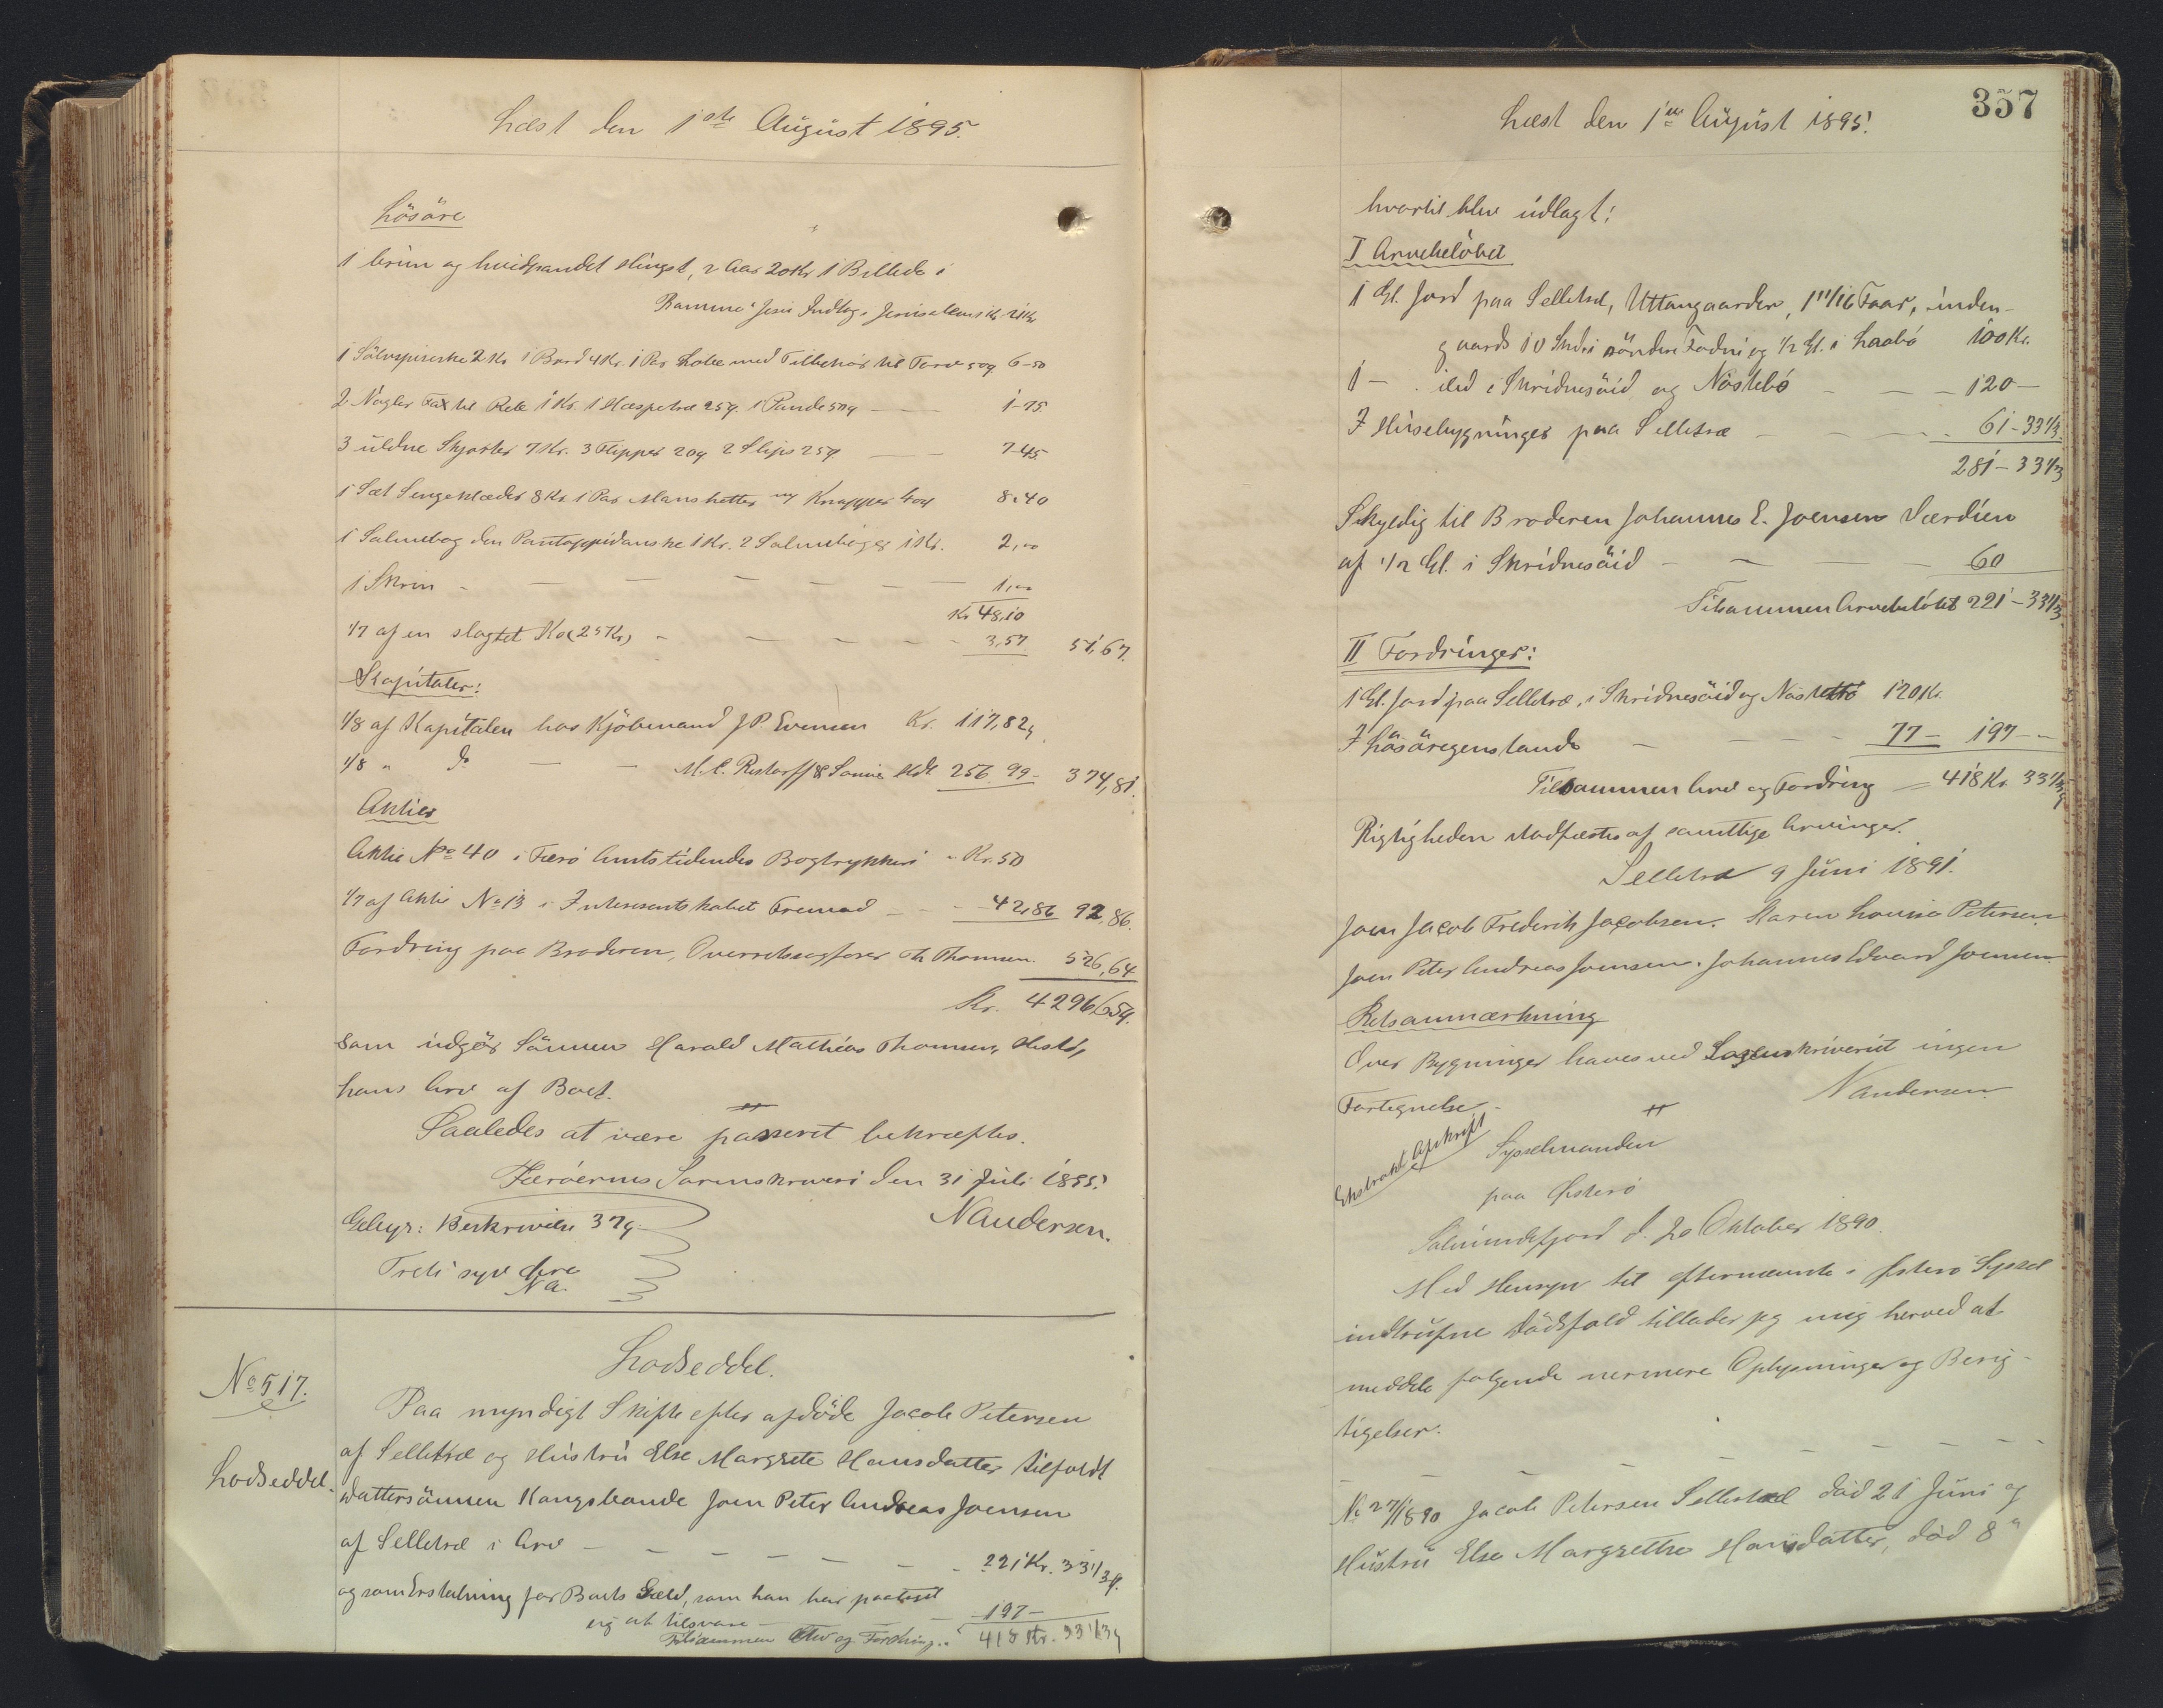 Læst den 1ste August 1895.
Lösöre
1 brun og hvidpandet Hingst, 2 Aar 20 Kr 1 Billede i
Ramme "Jesu Indtog i Jerusalem" 1 Kr
1 Sölvspiseske 2 Kr 1 Bord 4 Kr. 1 Par med Tilbehör til Törv 50ø 6-50
2 Nagler Fax til Reb 1 Kr. 1 Hæspetræ 25ø. 1 Pande 50ø 1-75
3 uldne Skjorter 7 Kr. 3 Flipper 20ø 2 Slips 25ø. 7-45
1 Sæt Sengeklæder 8 Kr 1 Par Manshetter og Knapper 40ø 8.40
1 Salmebog den Pontoppidanske 1 Kr. 2 Salmebøger 1 Kr. 2,00
1 Skrin 1,00
Kr 48,10
1/7 af en slagtet Ko (25 Kr) 3,57. 51,67.
Kapitaler:
1/8 af Kapitalen hos Kjöbmand J.P. Evensen Kr. 117,82ø
1/8 " do M.C. Restorff & Sönner 256.99 374,81.
Aktier
Aktie No 40 i Færø Amtstidendes Bogtrykkeri Kr. 50
1/7 af Aktie No 13 i Interesentskabet Fremad 42,86 92,86.
Fordring paa Broderen, Overretssagfører Th. Thomsen. 526,64
Kr. 4296,65ø.
som udgör Sönnen Harald Mathias Thomsens
hans Arv af Boet.
Saaledes at være passeret bekræftes.
Færöernes Sorenskriveri den 31 Juli 1895.
NAndersen.
Gebyr: Beskrivelse 37ø
Treti syv Øre
NA.
No 517.
Lodseddel.
Lodseddel.
Paa myndigt Skifte efter afdöde Jacob Petersen
af Selletræ og Hustru Else Margrete Hansdatter tilfaldt
Dattersönnen Kongsbonde Joen Peter Andreas Joensen
af Selletræ i Arv 221 Kr. 33 1/3 ø.
og som Erstatning for Boets Gæld, som han har paataget
sig at tilsvare 197-
Tilsammen Arv og Fordring.. 418 Kr. 33 1/3 ø
357
Læst den 1ste August 1895.
hvortil blev udlagt:
I Arvebelöbet
1 Gl. Jord paa Selletræ, Uttangaarden, 1 11/16 Faar, inden-
gaards 10 Skd. i söndere Fodni og 1/2 Gl. i Haabö 100 Kr.
1 - . ibd i Skridnesöid og Nöstebö 120-
I Husebygninger paa Selletræ 61-33 1/3
281-33 1/3
Skyldig til Broderen Johannes E. Joensen Værdien
af 1/2 Gl. i Skridnesöid 60
Tilsammen Arvebelöbet 221-33 1/3
II Fordringer:
1 Gl. Jord paa Selletræ, i Skridnesöid og Nöstebö 120 Kr.
I Lösöregenstande 77- 197-
Tilsammen Arv og Fordring 418 Kr. 33 1/3 ø
Rigtigheden stadfæstes af samtlige Arvinger.
Selletræ 9 Juni 1891.
Joen Jacob Frederik Jacobsen. Karen Lovisa Petersen
Joen Peter Andreas Joensen. Johannes Edvard Joensen
Retsanmærkning
Over Bygninger haves ved Sorenskriveriet ingen
Fortegnelse.
NAndersen.
Ekstrakt Afskrift
Sysselmanden
paa Østerö
Solmundefjord d. 20 Oktober 1890.
Med Hensyn til efternævnte i Østerø Syssel
indtrufne Dödsfald tillader jeg mig herved at
meddele følgende nærmere Oplysninger og Berig-
tigelser.
No 27/1890 Jacob Petersen Selletræ död 21 Juni og
Hustru Else Margrethe Hansdatter, död 8"